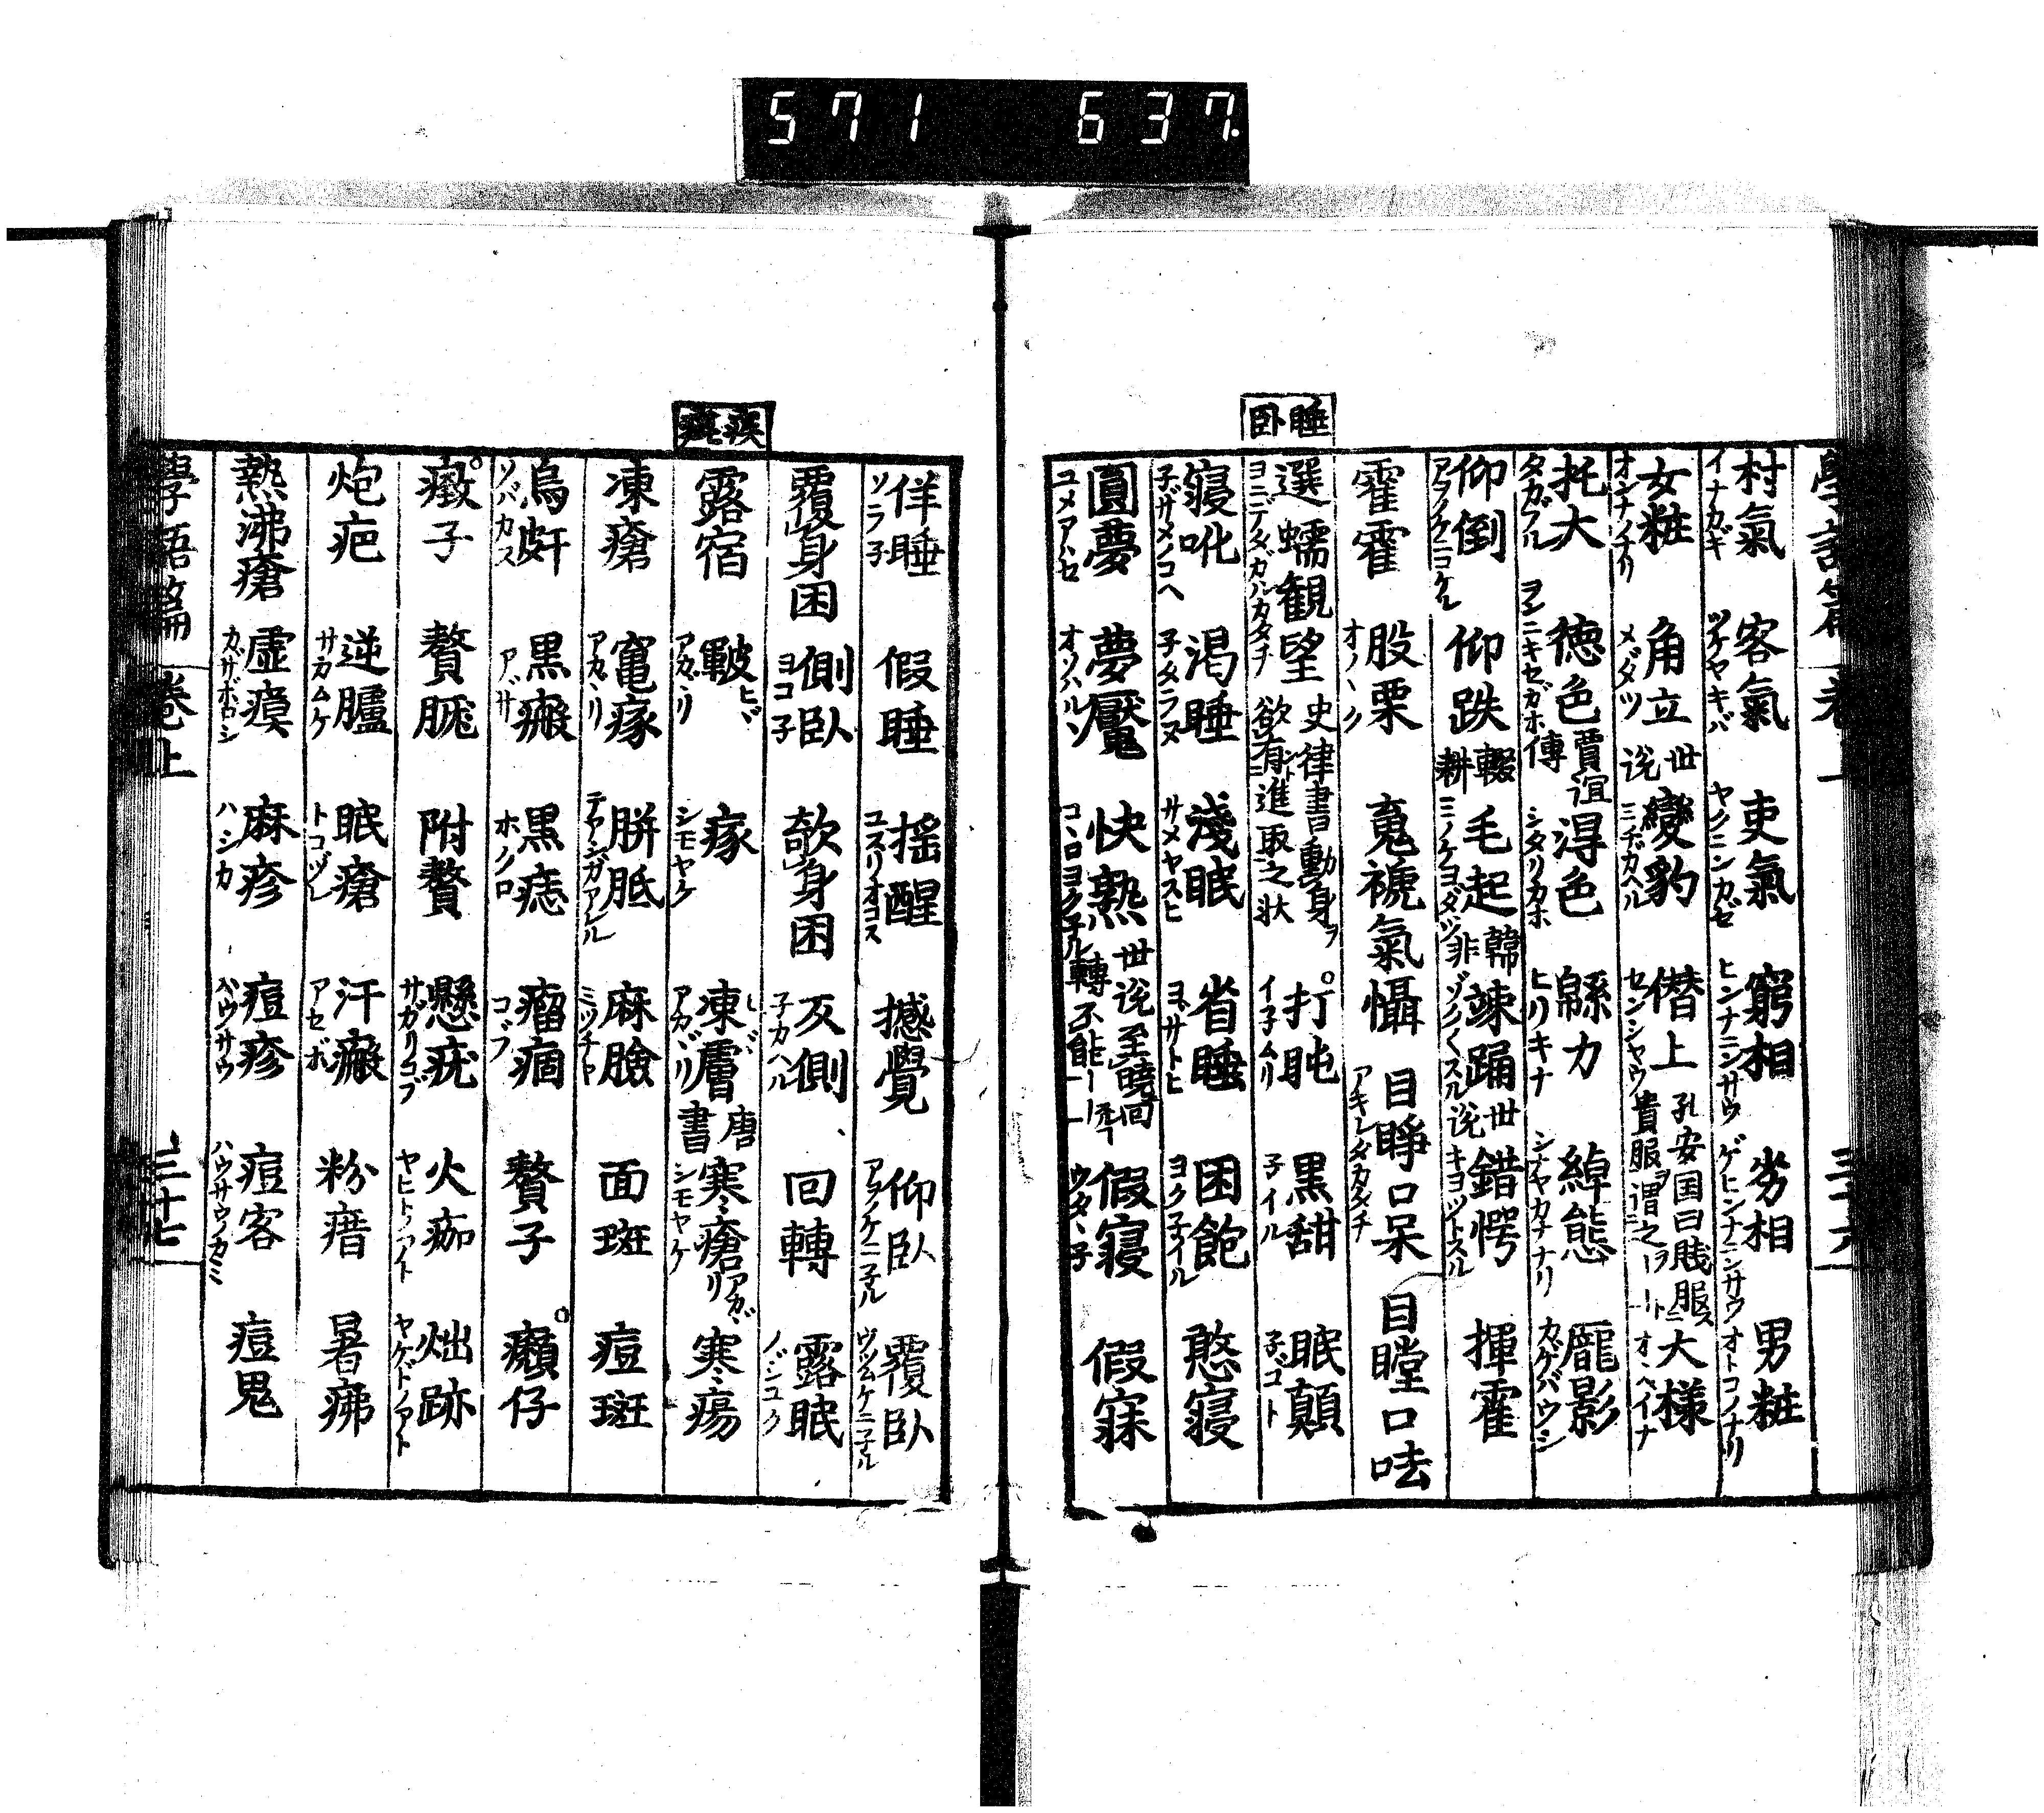 571 637
學語篇 卷上 三十六
村氣 イナカギ 客氣 ツケヤキバ 吏氣 ヤクニンカゼ 窮相 ヒンナニンサウ 劣相 ゲヒンナニンサウ 男粧 オトコノナリ
女粧 オンナノナリ 角立 メダツ 世説 變豹 ミチガヘル 僭上 センシャウ 孔安国曰賎服貴服謂之 大様 オヽヘイナ
托大 タカブル 徳色 ヲンニキセガホ 賈誼傳 淂色 シタリカホ 緜力 ヒリキナ 綽態 シナヤカナナリ 龎影 カゲバウシ
仰倒 アヲノケニコケル 仰跌 輟耕 毛起 ミノケヨダツ 韓非 竦踊 ゾクゾクスル 世説 錯愕 キヨツトスル 揮霍
霍霍 股栗 オノヽク 䰟褫氣懾 目睁口呆 アキレタカタチ 目瞠口呿
睡卧
選蠕観望 ヨニデタガルカタチ 史律書動身欲有進取之状 打盹 イ子ムリ 黒甜 子イル 眠顛 子ゴト
寢吪 子ザメノコヘ 渇睡 子タラヌ 淺眠 サメヤスヒ 省睡 ヨサトヒ 困飽 ヨク子イル 憨寢
圓夢 ユメアハセ 夢魘 オソハルヽ 快熟 コヽロヨク子ル 世説至曉回轉不能 假寢 ウタヽ子 假寐
佯睡 ソラ子 假睡 揺醒 コスリオコス 撼覺 仰臥 アヲノケニ子ル 覆臥 ウツムケニ子ル
覆身困 側臥 ヨコ子 欹身困 反側 子カヘル 回轉 露眠 ノジユク
疾病
露宿 皸 ヒヾ アカヾリ 瘃 シモヤケ 凍膚 アカヾリ 唐書 寒瘡 アカヾリ シモヤケ 寒瘍
凍瘡 竃瘃 アカヾリ 胼胝 テアシガアレル 麻臉 ミツチヤ 面斑 痘斑
烏皯 ソバカス 黒瘢 アザ 黒痣 ホクロ 瘤痼 コブ 贅子 癩仔
癥子 贅胧 附贅 懸疣 サガリコブ 火痂 ヤヒトノアト 灿跡 ヤケドノアト
炮疤 逆臚 サカムケ 眠瘡 トコヅレ 汗癜 アセボ 粉㾪 暑疿
熱沸瘡 虚瘼 カザボロシ 麻疹 ハシカ 痘疹 ハウサウ 痘客 ハウサウノカミ 痘鬼
學語篇 卷上 三十七